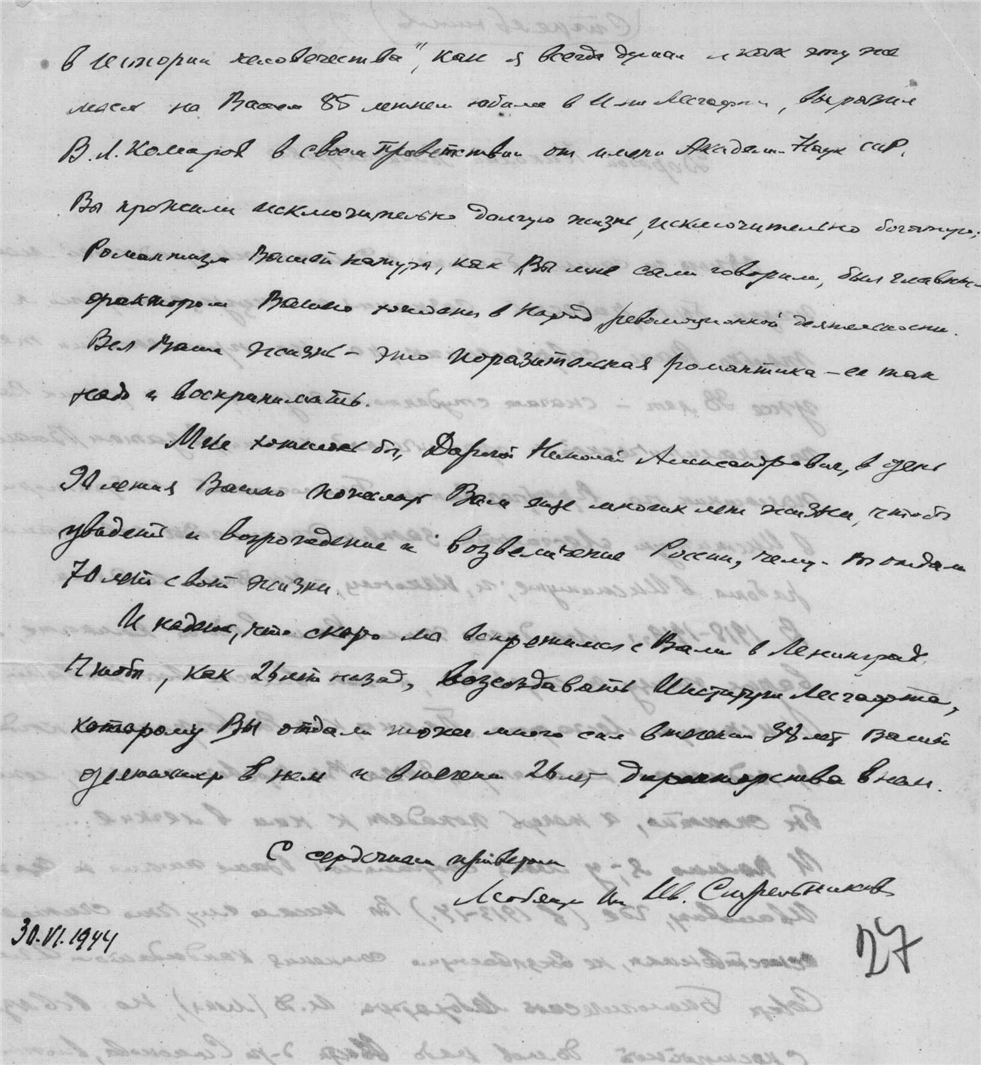 в истории человечества", как я всегда думал и как эту же
мысль на Вашем 85 летнем юбилее в Ин-те Лесгафта, выразил
В.Л. Комаров в своем Приветствии от имени Академии Наук СССР.
Вы прожили исключительно долгую жизнь, исключительно богатую;
Романтизм Вашей натуры, как Вы мне сами говорили, был главным
фактором Вашего хождения в Народ, революционной деятельности.
Вся Ваша жизнь – это поразительная романтика – ее так
надо и воспринимать.
Мне хотелось бы, Дорогой Николай Александрович, в день
90 летия Вашего пожелать Вам еще многих лет жизни, чтобы
увидеть и возрождение и возвеличение России, чему Вы отдали
70 лет своей жизни.
И надеюсь, что скоро мы встретимся с Вами в Ленинграде
чтобы, как 26 лет назад, возсоздавать Институт Лесгафта,
которому Вы отдали тоже много сил в течении 38 лет Вашей
деятельн. в нем и в течении 26 лет директорства в нем.
С сердечным приветом
Любящий Ив. Стрельников
30.VI.1944
27